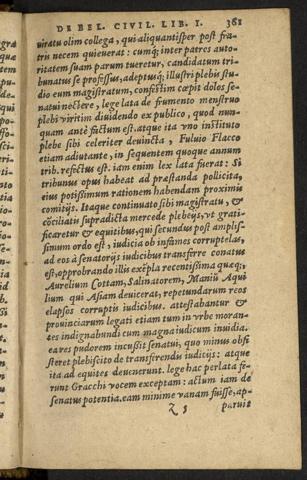 DE BEL. CIVIL. LIB. I. 361
uiratu olim collega, qui aliquantisper post fra⸗
tris necem quieuerat: cumq́; inter patres auto⸗
ritatem suam parum tueretur, candidatum tri⸗
bunatus se professus, adeptusq́; illustri plebis stu⸗
dio eum magistratum, confestim cœpit dolos se⸗
natui nectere, lege lata de frumento menstruo
plebi viritim diuidendo ex publico, quod nun⸗
quam antè factum est. atque ita vno instituto
plebe sibi celeriter deuincta, Fuluio Flacco
etiam adiutante, in sequentem quoque annum
trib. refectus est. iam enim lex lata fuerat: Si
tribunus opus habeat ad præstanda pollicita,
eius potissimum rationem habendam proximis
comitijs. Itaque continuato sibi magistratu, &
cōciliatis supradicta mercede plebeijs, vt grati⸗
ficaretur & equitibus, qui secundus post amplis⸗
simum ordo est, iudicia ob infames corruptelas,
ad eos à senatorijs iudicibus transferre conatus
est, opprobrando illis exēpla recentissima quæq́;,
Aurelium Cottam, Salinatorem, Maniū Aqui
lium qui Asiam deuicerat, repetundarum reos
elapsos corruptis iudicibus. attestabantur &
prouinciarum legati etiam tum in vrbe moran⸗
tes indignabundi cum magna iudicum inuidia.
ea res pudorem incussit senatui, quo minus obsi
steret plebiscito de transferendis iudicijs: atque
ita ad equites deuenerunt. lege hac perlata fe⸗
runt Gracchi vocem exceptam: actum iam de
senatus potentia. eam minimè vanam fuisse, ap⸗
Z 5 paruit